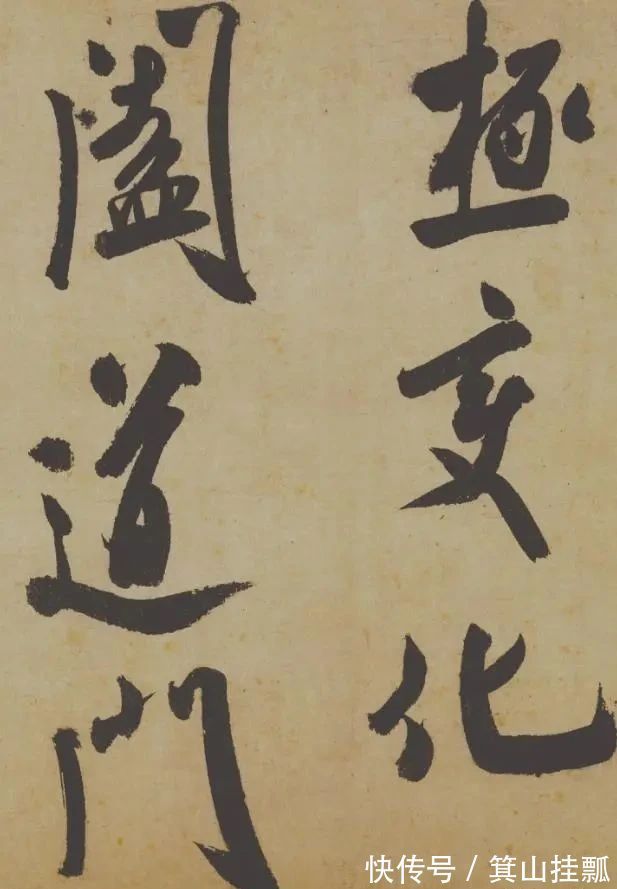 極變化
闔道門
快传号 / 箕山挂瓢